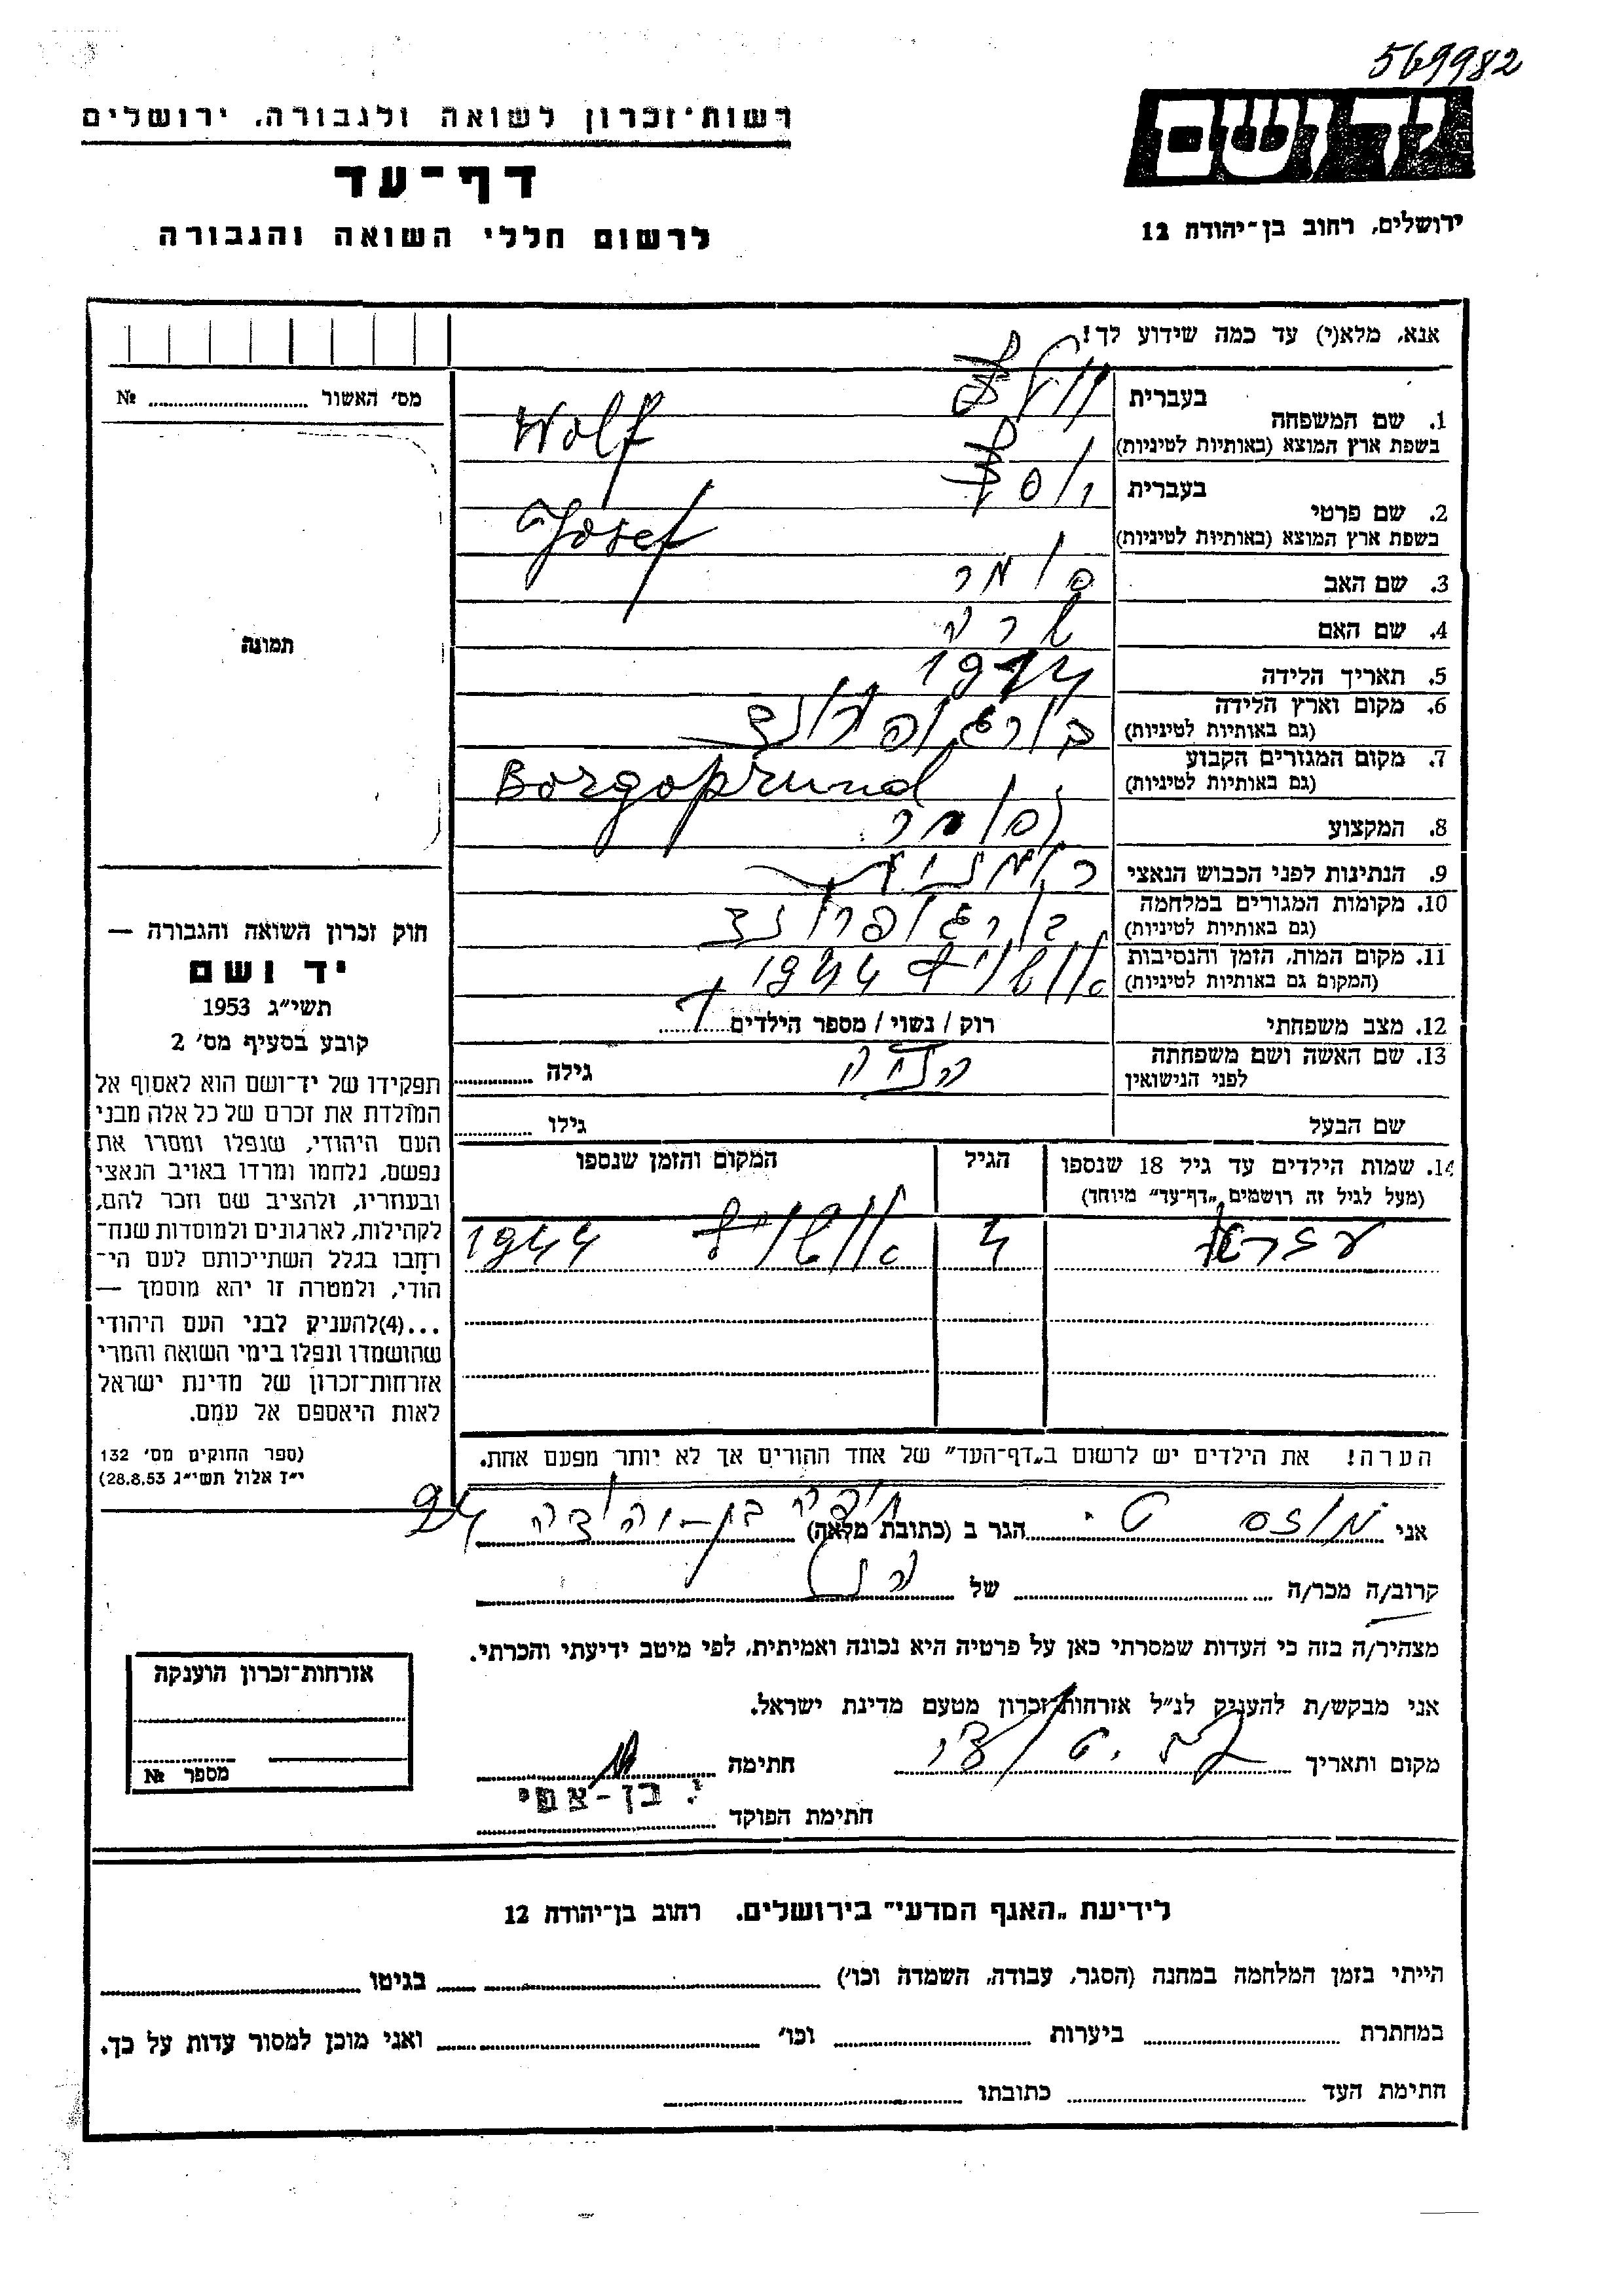 569982
ידושם
ירושלים, רחוב בן-יהודה 12
רשות-זכרון לשואה ולגבורה, ירושלים
דף-עד
לרשום חללי השואה והגבורה
אנא, מלא(י) עד כמה שידוע לך!
בעברית
1. שם המשפחה
וולף
בשפת ארץ המוצא (באותיות לטיניות)
Wolf
בעברית
2. שם פרטי
יוסף
בשפת ארץ המוצא (באותיות לטיניות)
Josef
3. שם האב
4. שם האם שרה
5. תאריך הלידה 1914
6. מקום וארץ הלידה
(גם באותיות לטיניות)
בורגופרונד
7. מקום המגורים הקבוע
(גם באותיות לטיניות)
Borgoprund
8. המקצוע סוחר
9. הנתינות לפני הכבוש הנאצי
10. מקומות המגורים במלחמה
(גם באותיות לטיניות)
בורגופרונד
11. מקום המות, הזמן והנסיבות
(המקום גם באותיות לטיניות)
אושויץ 1944
12. מצב משפחתי רוק / נשוי / מספר הילדים 1
13. שם האשה ושם משפחתה
לפני הנישואין
גילה
שם הבעל גילו
14. שמות הילדים עד גיל 18 שנספו הגיל המקום והזמן שנספו
(מעל לגיל זה רושמים "דף-עד" מיוחד)
4 אושויץ 1944
הערה! את הילדים יש לרשום ב"דף-העד" של אחד ההורים אך לא יותר מפעם אחת.
אני הגר ב (כתובת מלאה) חיפה בן-יהודה 94
קרוב/ה מכר/ה של
מצהיר/ה בזה כי העדות שמסרתי כאן על פרטיה היא נכונה ואמיתית, לפי מיטב ידיעתי והכרתי.
אני מבקש/ת להעניק לנ"ל אזרחות-זכרון מטעם מדינת ישראל.
מקום ותאריך חתימה
י. בן-צפי
חתימת הפוקד
מס' האשור №
תמונה
חוק זכרון השואה והגבורה —
יד ושם
תשי"ג 1953
קובע בסעיף מס' 2
תפקידו של יד-ושם הוא לאסוף אל
המולדת את זכרם של כל אלה מבני
העם היהודי, שנפלו ומסרו את
נפשם, נלחמו ומרדו באויב הנאצי
ובעוזריו, ולהציב שם וזכר להם,
לקהילות, לארגונים ולמוסדות שנח-
רחבו בגלל השתייכותם לעם הי-
הודי, ולמטרה זו יהא מוסמך —
...(4)להעניק לבני העם היהודי
שהושמדו ונפלו בימי השואה והמרי
אזרחות-זכרון של מדינת ישראל
לאות היאספם אל עמם.
(ספר החוקים מס' 132
י"ז אלול תשי"ג 28.8.53)
אזרחות-זכרון הוענקה
מספר №
לידיעת "האגף המדעי" בירושלים. רחוב בן-יהודה 12
הייתי בזמן המלחמה במחנה (הסגר, עבודה, השמדה וכו') בגיטו
במחתרת ביערות וכו' ואני מוכן למסור עדות על כך.
חתימת העד כתובתו